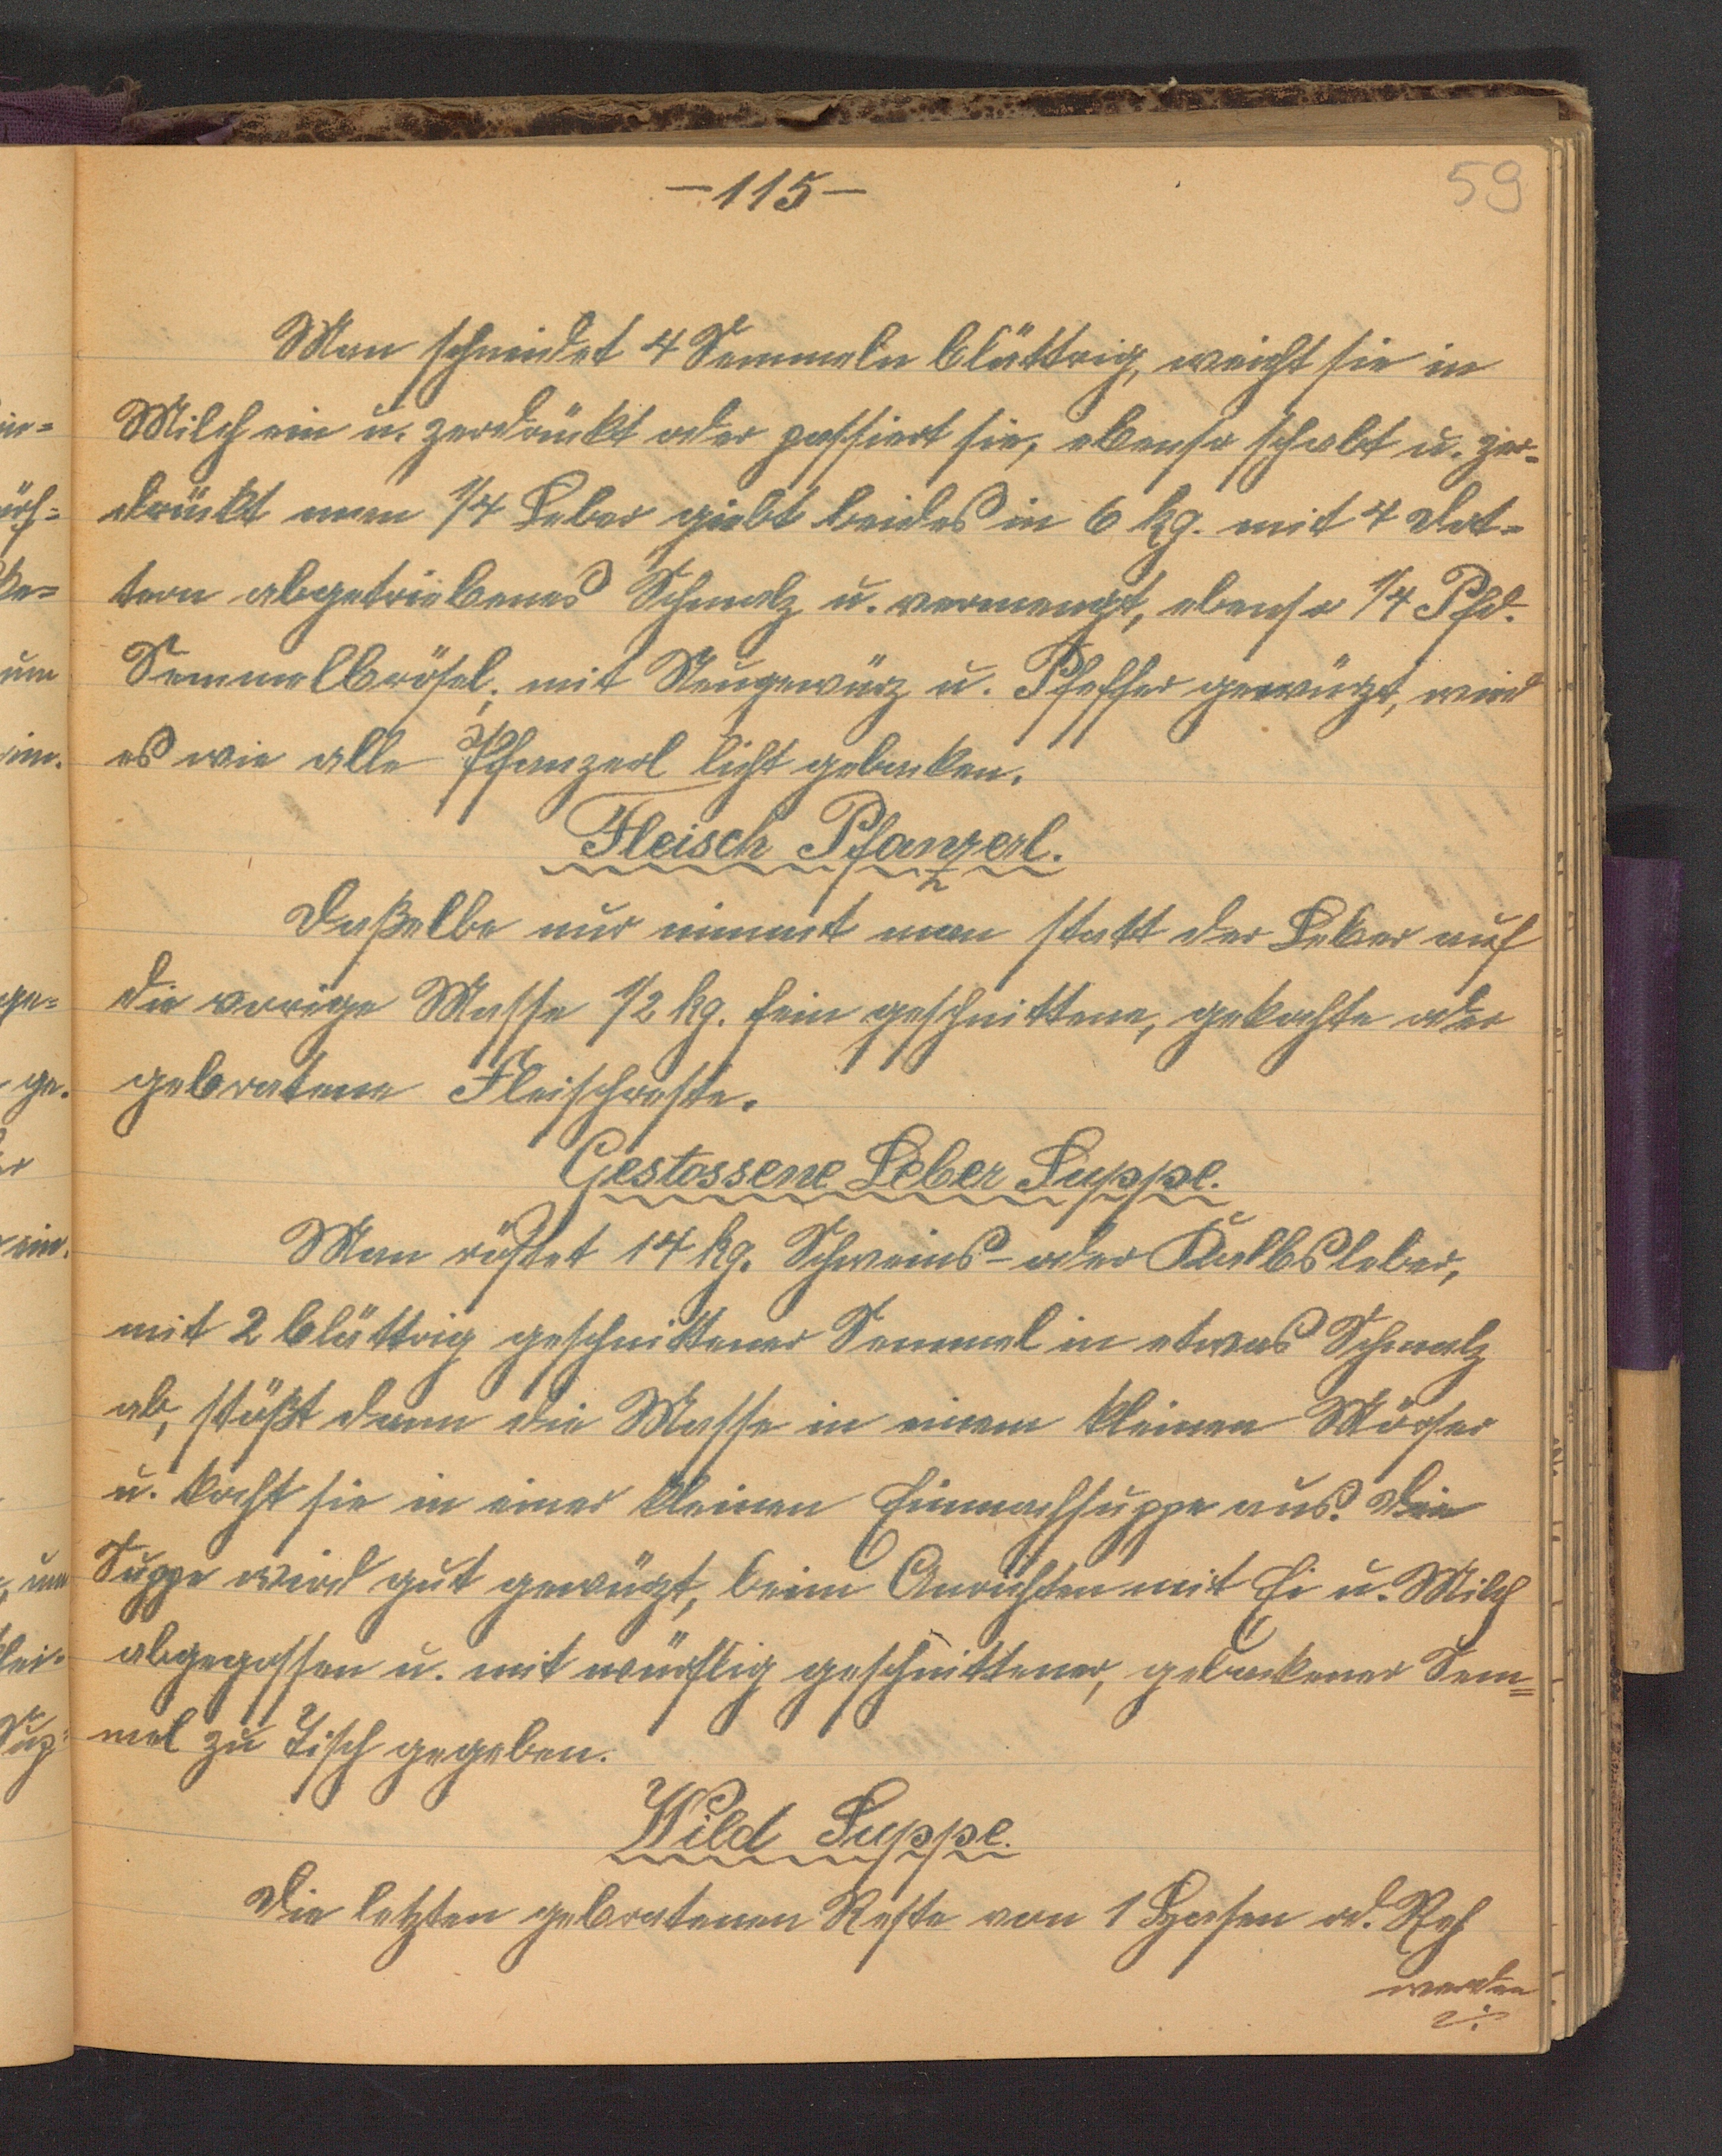 -115-
59
Man schneidet 4 Semmeln blättrig, weicht sie in
Milch ein u. zerdrückt oder passiert sie, ebenso schabt u. zer-
drückt man 1/4 Leber giebt beides in 6 kg. mit 4 Dot-
tern abgetriebenes Schmalz u. vermengt, ebenso 1/4 Pfd.
Semmelbrösel, mit Neugewürz u. Pfeffer gewürzt, wird
es wie alle Pfanzerl licht gebacken.
Fleisch Pfanzerl.
Daßelbe nur nimmt man statt der Leber auf
die vorige Masse 1/2 kg. fein geschnittene, gekochte oder
gebratene Fleischreste.
Gestossene Leber Suppe.
Man röstet 14 kg. Schweins- oder Kalbsleber,
mit 2 blättrig geschnittener Semmel in etwas Schmalz
ab, stößt dann die Masse in einem kleinen Mörser
u. kocht sie in einer kleinen Einmachsuppe aus. Die
Suppe wird gut gewürzt, beim Anrichten mit Ei u. Milch
abgegossen u. mit würflig geschnittener, gebackener Sem=
mel zu Tisch gegeben.
Wild Suppe.
Die letzten gebratenen Reste von 1 Hasen od. Reh
werden